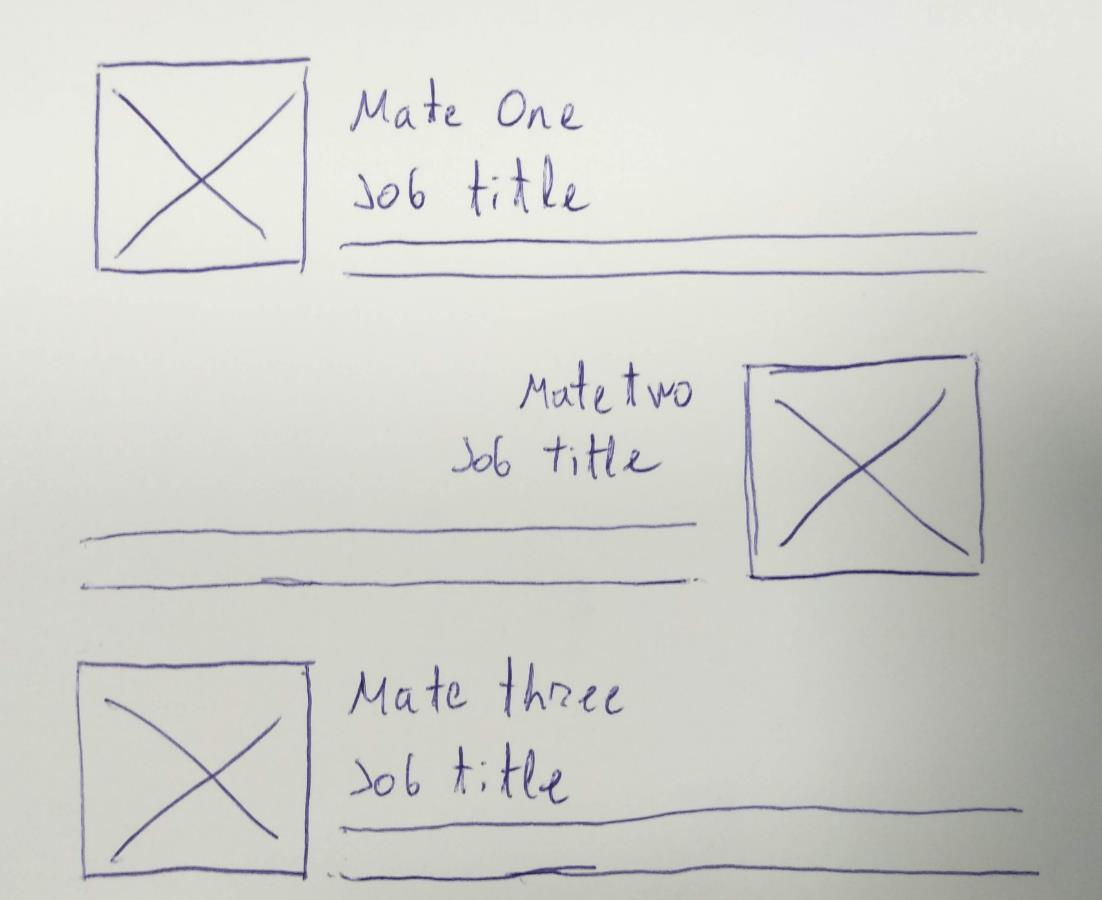 Mate One
Job title
Mate two
Job title
Mate three
Job title